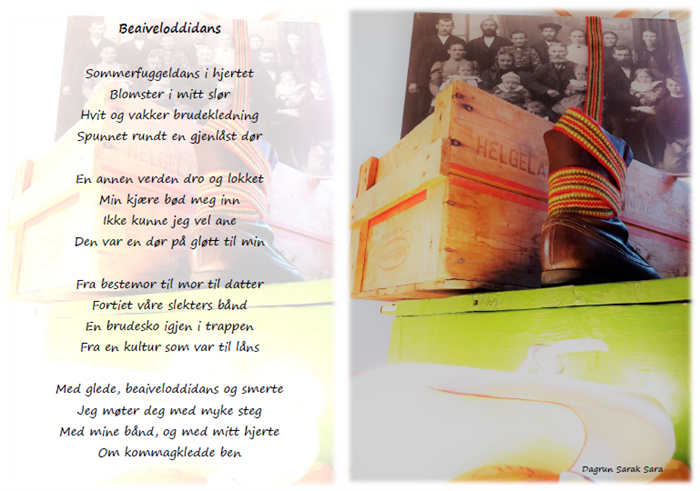 Beaiveloddidans
Sommerfuggeldans i hjertet
Blomster i mitt slør
Hvit og vakker brudekledning
Spunnet rundt en gjenlåst dør
En annen verden dro og lokket
Min kjære bød meg inn
Ikke kunne jeg vel ane
Den var en dør på gløtt til min
Fra bestemor til mor til datter
Fortiet våre slekters bånd
En brudesko igjen i trappen
Fra en kultur som var til låns
Med glede, beaiveloddidans og smerte
Jeg møter deg med myke steg
Med mine bånd, og med mitt hjerte
Om kommagkledde ben
HELGELA
Dagrun Sarak Sara